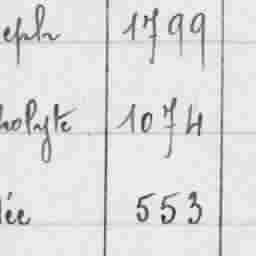 eph 1799
holyte 1074
lée 553